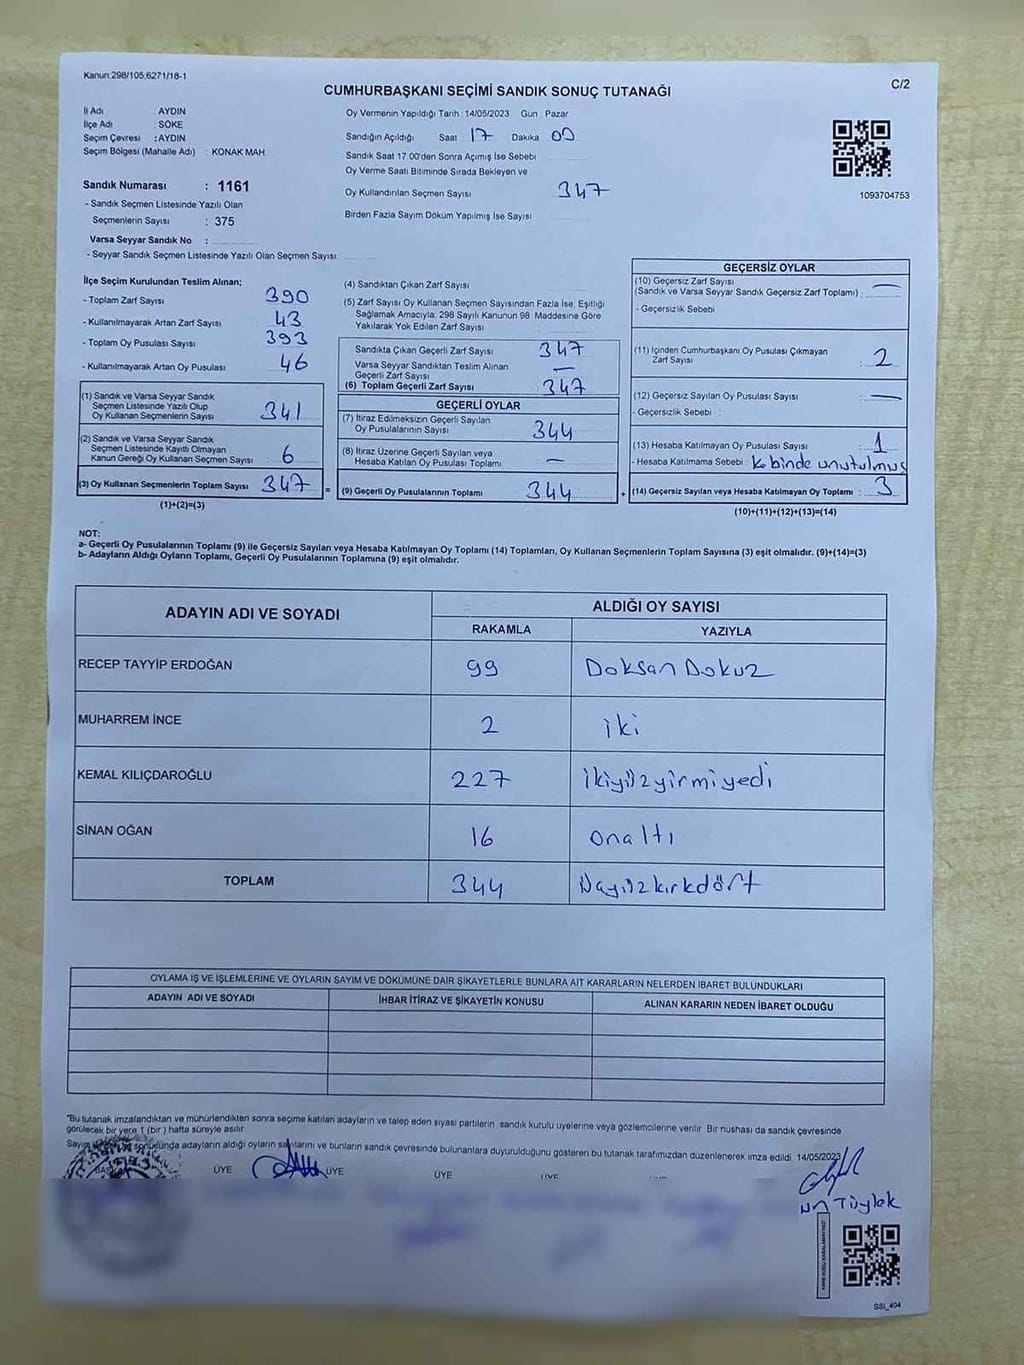 Kanun:298/105;6271/18-1
C/2
CUMHURBAŞKANI SEÇİMİ SANDIK SONUÇ TUTANAĞI
İl Adı : AYDIN
İlçe Adı : SÖKE
Seçim Çevresi : AYDIN
Seçim Bölgesi (Mahalle Adı) : KONAK MAH.
Sandık Numarası : 1161
- Sandık Seçmen Listesinde Yazılı Olan
Seçmenlerin Sayısı : 375
Varsa Seyyar Sandık No :
- Seyyar Sandık Seçmen Listesinde Yazılı Olan Seçmen Sayısı:
Oy Vermenin Yapıldığı Tarih : 14/05/2023 Gün : Pazar
Sandığın Açıldığı Saat 17 Dakika 00
Sandık Saat 17:00'den Sonra Açımış İse Sebebi
Oy Verme Saati Bitiminde Sırada Bekleyen ve
Oy Kullandırılan Seçmen Sayısı 347
Birden Fazla Sayım Döküm Yapılmış İse Sayısı
1093704753
İlçe Seçim Kurulundan Teslim Alınan;
- Toplam Zarf Sayısı 390
- Kullanılmayarak Artan Zarf Sayısı 43
- Toplam Oy Pusulası Sayısı 393
- Kullanılmayarak Artan Oy Pusulası 46
(1) Sandık ve Varsa Seyyar Sandık
Seçmen Listesinde Yazılı Olup
Oy Kullanan Seçmenlerin Sayısı 341
(2) Sandık ve Varsa Seyyar Sandık
Seçmen Listesinde Kayıtlı Olmayan
Kanun Gereği Oy Kullanan Seçmen Sayısı 6
(3) Oy Kullanan Seçmenlerin Toplam Sayısı 347 =
(1)+(2)=(3)
(4) Sandıktan Çıkan Zarf Sayısı
(5) Zarf Sayısı Oy Kullanan Seçmen Sayısından Fazla İse, Eşitliği
Sağlamak Amacıyla; 298 Sayılı Kanunun 98. Maddesine Göre
Yakılarak Yok Edilen Zarf Sayısı
Sandıkta Çıkan Geçerli Zarf Sayısı 347
Varsa Seyyar Sandıktan Teslim Alınan
Geçerli Zarf Sayısı —
(6) Toplam Geçerli Zarf Sayısı 347
GEÇERLİ OYLAR
(7) İtiraz Edilmeksizin Geçerli Sayılan
Oy Pusulalarının Sayısı 344
(8) İtiraz Üzerine Geçerli Sayılan veya
Hesaba Katılan Oy Pusulası Toplamı —
(9) Geçerli Oy Pusulalarının Toplamı 344 +
GEÇERSİZ OYLAR
(10) Geçersiz Zarf Sayısı
(Sandık ve Varsa Seyyar Sandık Geçersiz Zarf Toplamı) : —
- Geçersizlik Sebebi
(11) İçinden Cumhurbaşkanı Oy Pusulası Çıkmayan
Zarf Sayısı 2
(12) Geçersiz Sayılan Oy Pusulası Sayısı : —
- Geçersizlik Sebebi :
(13) Hesaba Katılmayan Oy Pusulası Sayısı : 1
- Hesaba Katılmama Sebebi : Kabinde unutulmuş
(14) Geçersiz Sayılan veya Hesaba Katılmayan Oy Toplamı : 3
(10)+(11)+(12)+(13)=(14)
NOT:
a- Geçerli Oy Pusulalarının Toplamı (9) ile Geçersiz Sayılan veya Hesaba Katılmayan Oy Toplamı (14) Toplamları, Oy Kullanan Seçmenlerin Toplam Sayısına (3) eşit olmalıdır. (9)+(14)=(3)
b- Adayların Aldığı Oyların Toplamı, Geçerli Oy Pusulalarının Toplamına (9) eşit olmalıdır.
ADAYIN ADI VE SOYADI
ALDIĞI OY SAYISI
RAKAMLA YAZIYLA
RECEP TAYYİP ERDOĞAN 99 Doksan Dokuz
MUHARREM İNCE 2 iki
KEMAL KILIÇDAROĞLU 227 ikiyüzyirmiyedi
SİNAN OĞAN 16 onaltı
TOPLAM 344 üçyüzkırkdört
OYLAMA İŞ VE İŞLEMLERİNE VE OYLARIN SAYIM VE DÖKÜMÜNE DAİR ŞİKAYETLERLE BUNLARA AİT KARARLARIN NELERDEN İBARET BULUNDUKLARI
ADAYIN ADI VE SOYADI İHBAR İTİRAZ VE ŞİKAYETİN KONUSU ALINAN KARARIN NEDEN İBARET OLDUĞU
*Bu tutanak imzalandıktan ve mühürlendikten sonra seçime katılan adayların ve talep eden siyasi partilerin sandık kurulu üyelerine veya gözlemcilerine verilir. Bir nüshası da sandık çevresinde
görülecek bir yere 1 (bir) hafta süreyle asılır.
Sayım sonunda adayların aldığı oyların sayılarını ve bunların sandık çevresinde bulunanlara duyurulduğunu gösteren bu tutanak tarafımızdan düzenlenerek imza edildi. 14/05/2023
ÜYE ÜYE ÜYE
SSI_404